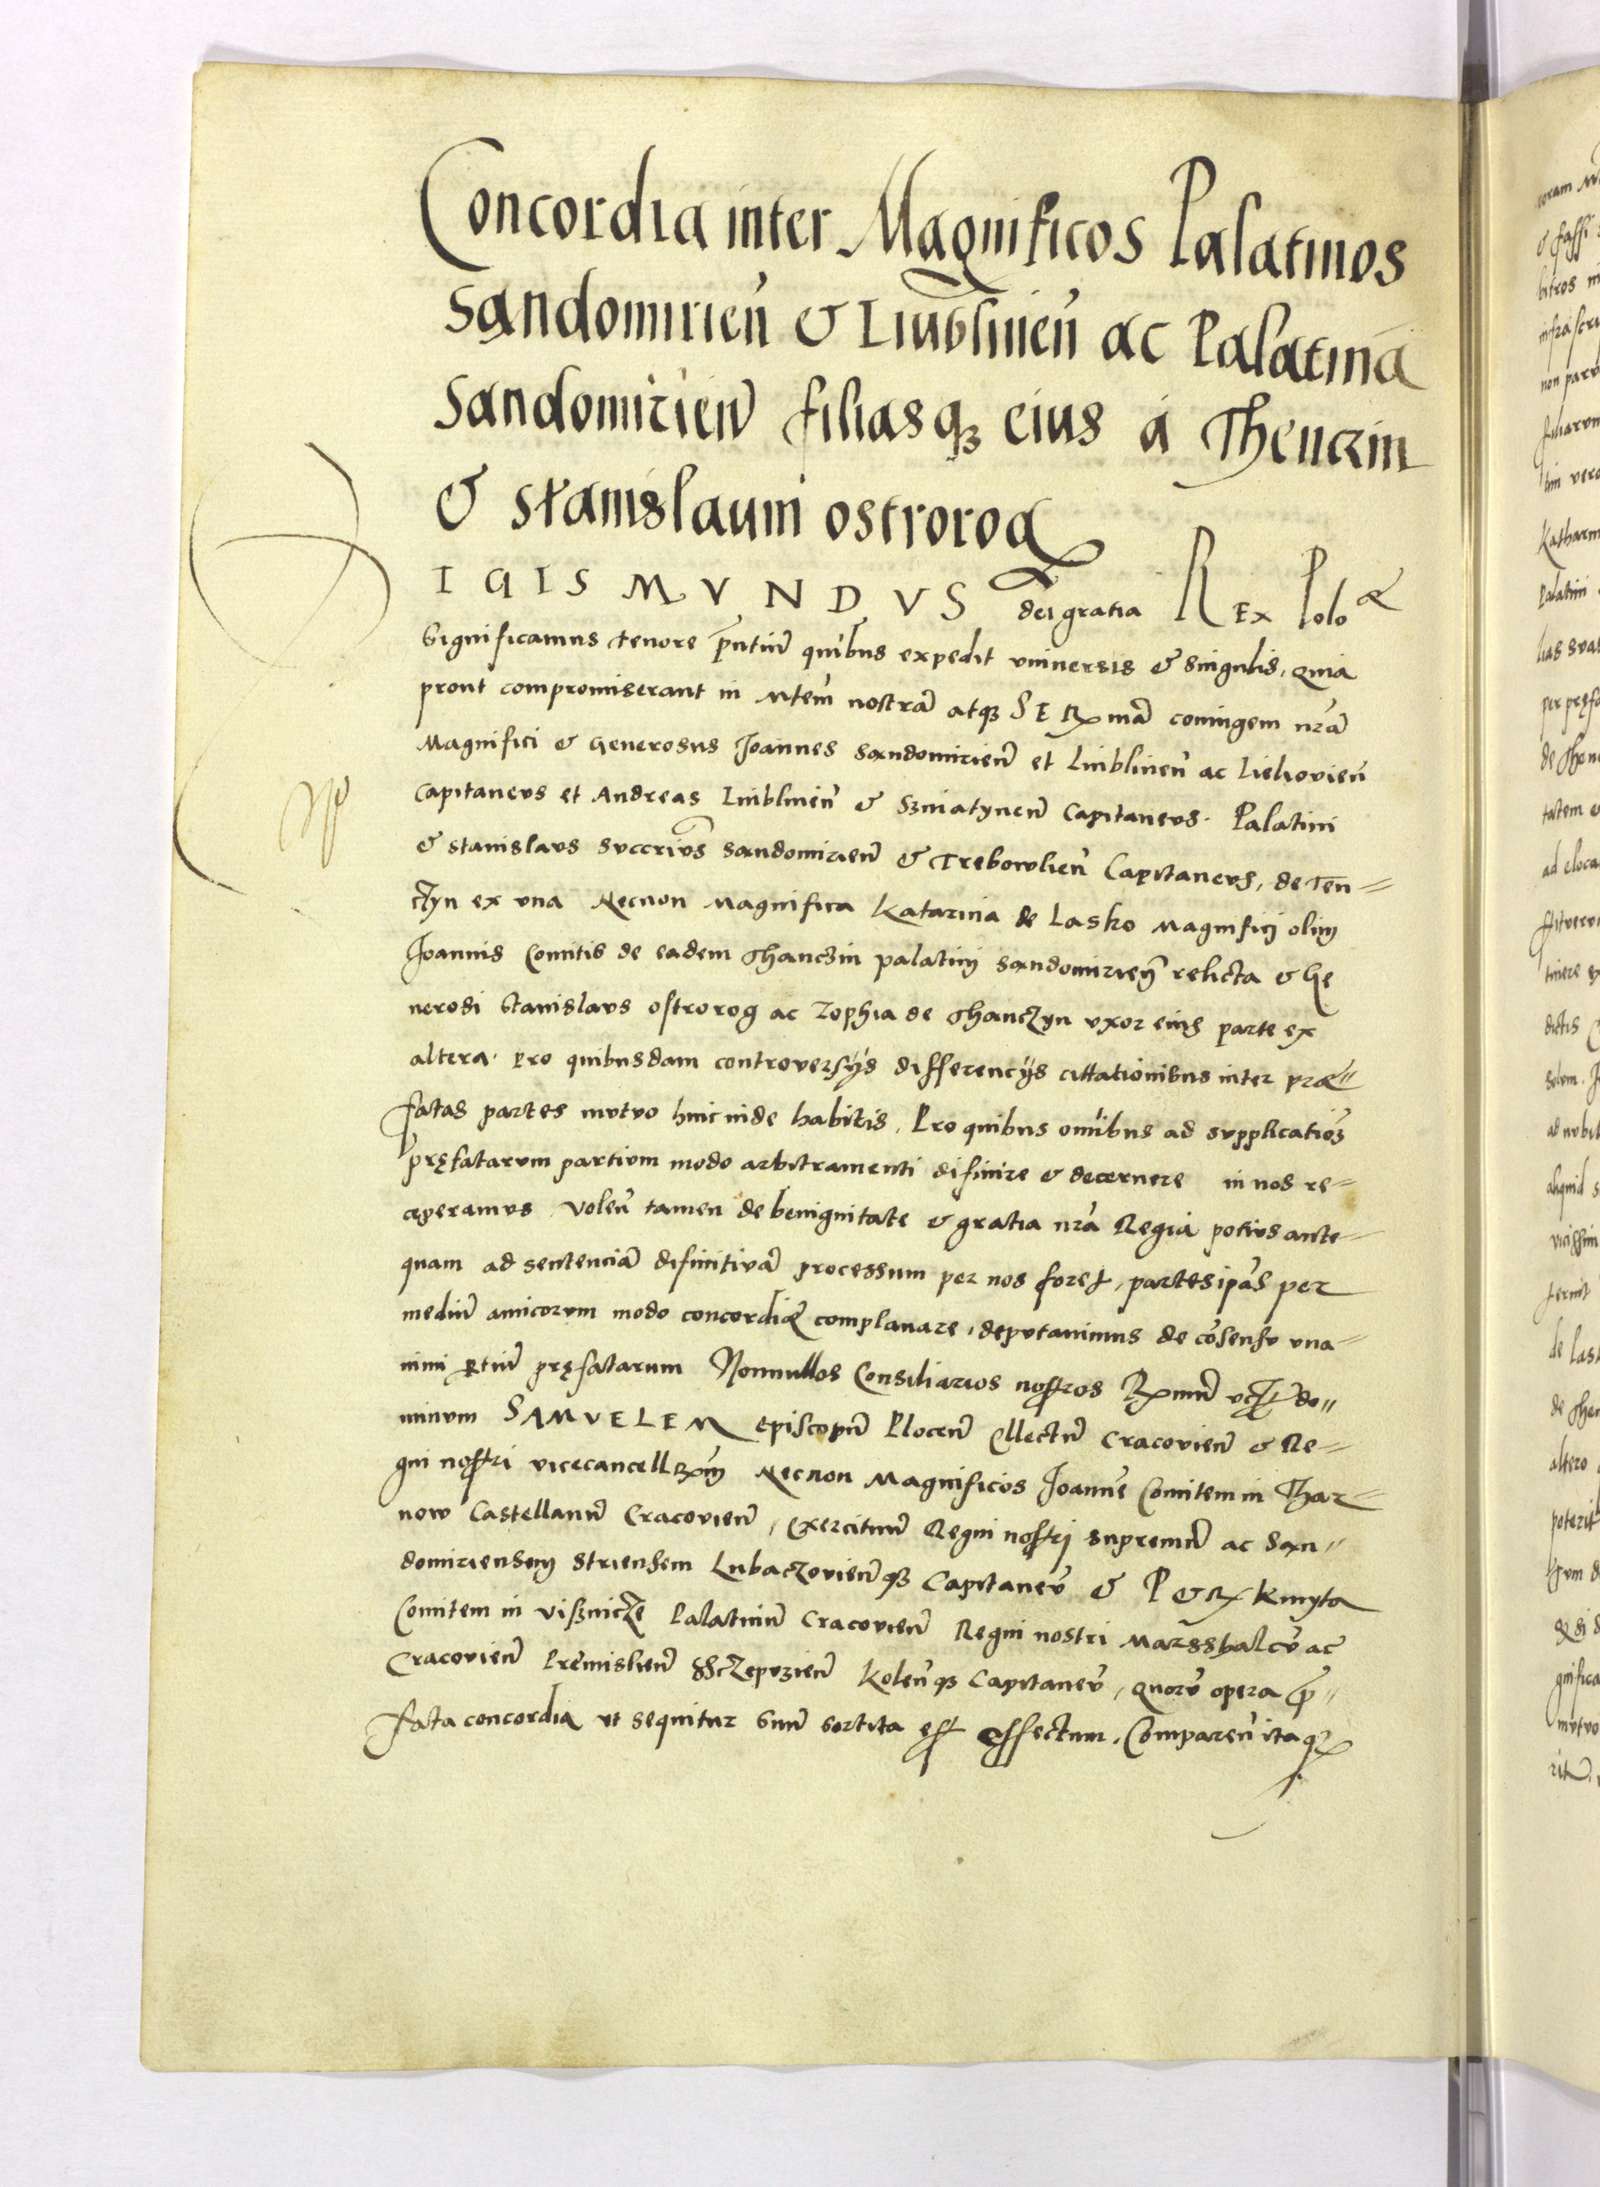 Concordia inter Magnificos Palatinos
Sandomirien̄ & Liublinen̄ ac Palatinā
Sandomirien̄ filiasq₃ eius á Thenczin
& Stanislaum Ostrorog
IGISMVNDVS dei gratia REx Polo &
Significamus tenore p̄ntiū quibus expedit vniuersis & singulis, quia
prout compromiserant in Mtem̄ nostrā atq₃ SERmā coniugem nrā
Magnifici & Generosus Joannes Sandomirien̄ et Liublinen̄ ac Lielıovien̄
Capitaneus et Andreas Liublinen̄ & Szniatynen̄ Capitaneus. Palatini
& Stanislaus Succ̄rius Sandomirien̄ & Trebowlien̄ Capitaneus, de Ten=
czyn ex vna Necnon Magnifica Katarina de Lasko Magnifici olim
Joannis Comitis de eadem Thanczin palatini Sandomirien̄ relicta & Ge
nerosi Stanislaus Ostrorog ac Zophia de Thanczyn vxor eius parte ex
altera. Pro quibusdam controversÿs differencÿs cittationibus inter præ=
fatas partes mutuo hinc inde habitis. Pro quibus omībus ad supplicatiōz
pręfatarum partium modo arbitramenti difinire & decernere in nos re=
cęperamus volen̄ tamen de benignitate & gratia nrā Regia potius ante=
quam ad sentenciā difinitivā processum per nos foret, partes ipās per
mediū amicorum modo concordiæ complanare, deputauimus de cōsensu vna=
nimi p̲tiū pręfatarum Nonnullos Consiliarios nostros Rxmū do=
minum SAMVELEM Episcopū Plocen̄ Ellectū Cracovien̄ & Re=
gni nostri vicecancell Rxm̄ Necnon Magnificos Joannē Comitem in Thar=
now Castellanū Cracovien̄, exercituū Regni nostri supremū ac San=
domiriensem Striensem Lubaczovien̄q₃ Capitaneū & PETRx Kmyta
Comitem in Viszniczę Palatinū Cracovien̄ Regni nostri Marsshalcū ac
Cracovien̄ Premislien̄ Sczepuzien̄ Kolen̄q₃ Capitaneū, quorū opera p̄=
fata concordia ut sequitur suū sortita est effectum. Comparen̄ itaq₃